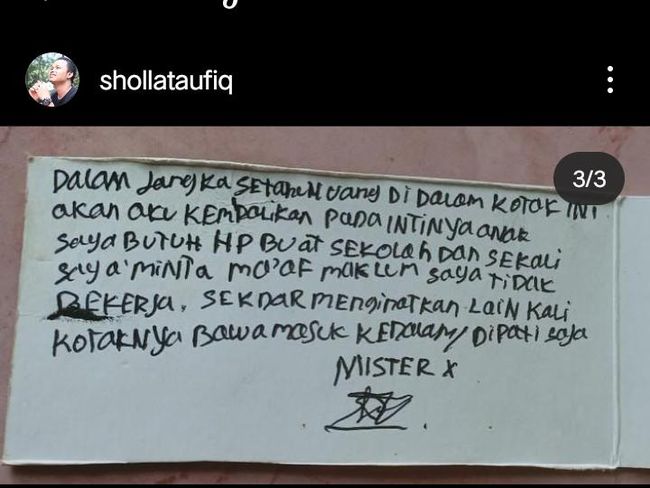 shollataufiq
3/3
Dalam Jangka SETAHUN uang Di Dalam KOTAK INI
akan aku KEMBALIKAN PADA INTINYA anak
saya BUTUH HP BUat SEKOLAH DAN SEKALI
saya MINTA MA'AF MAKLUM saya TIDAK
BEKERJA. SEKDAR MENGINATKAN LAIN KALI
KOTAKNYA BAWA MASUK KEDALAM/DIPATI saja
MISTER X